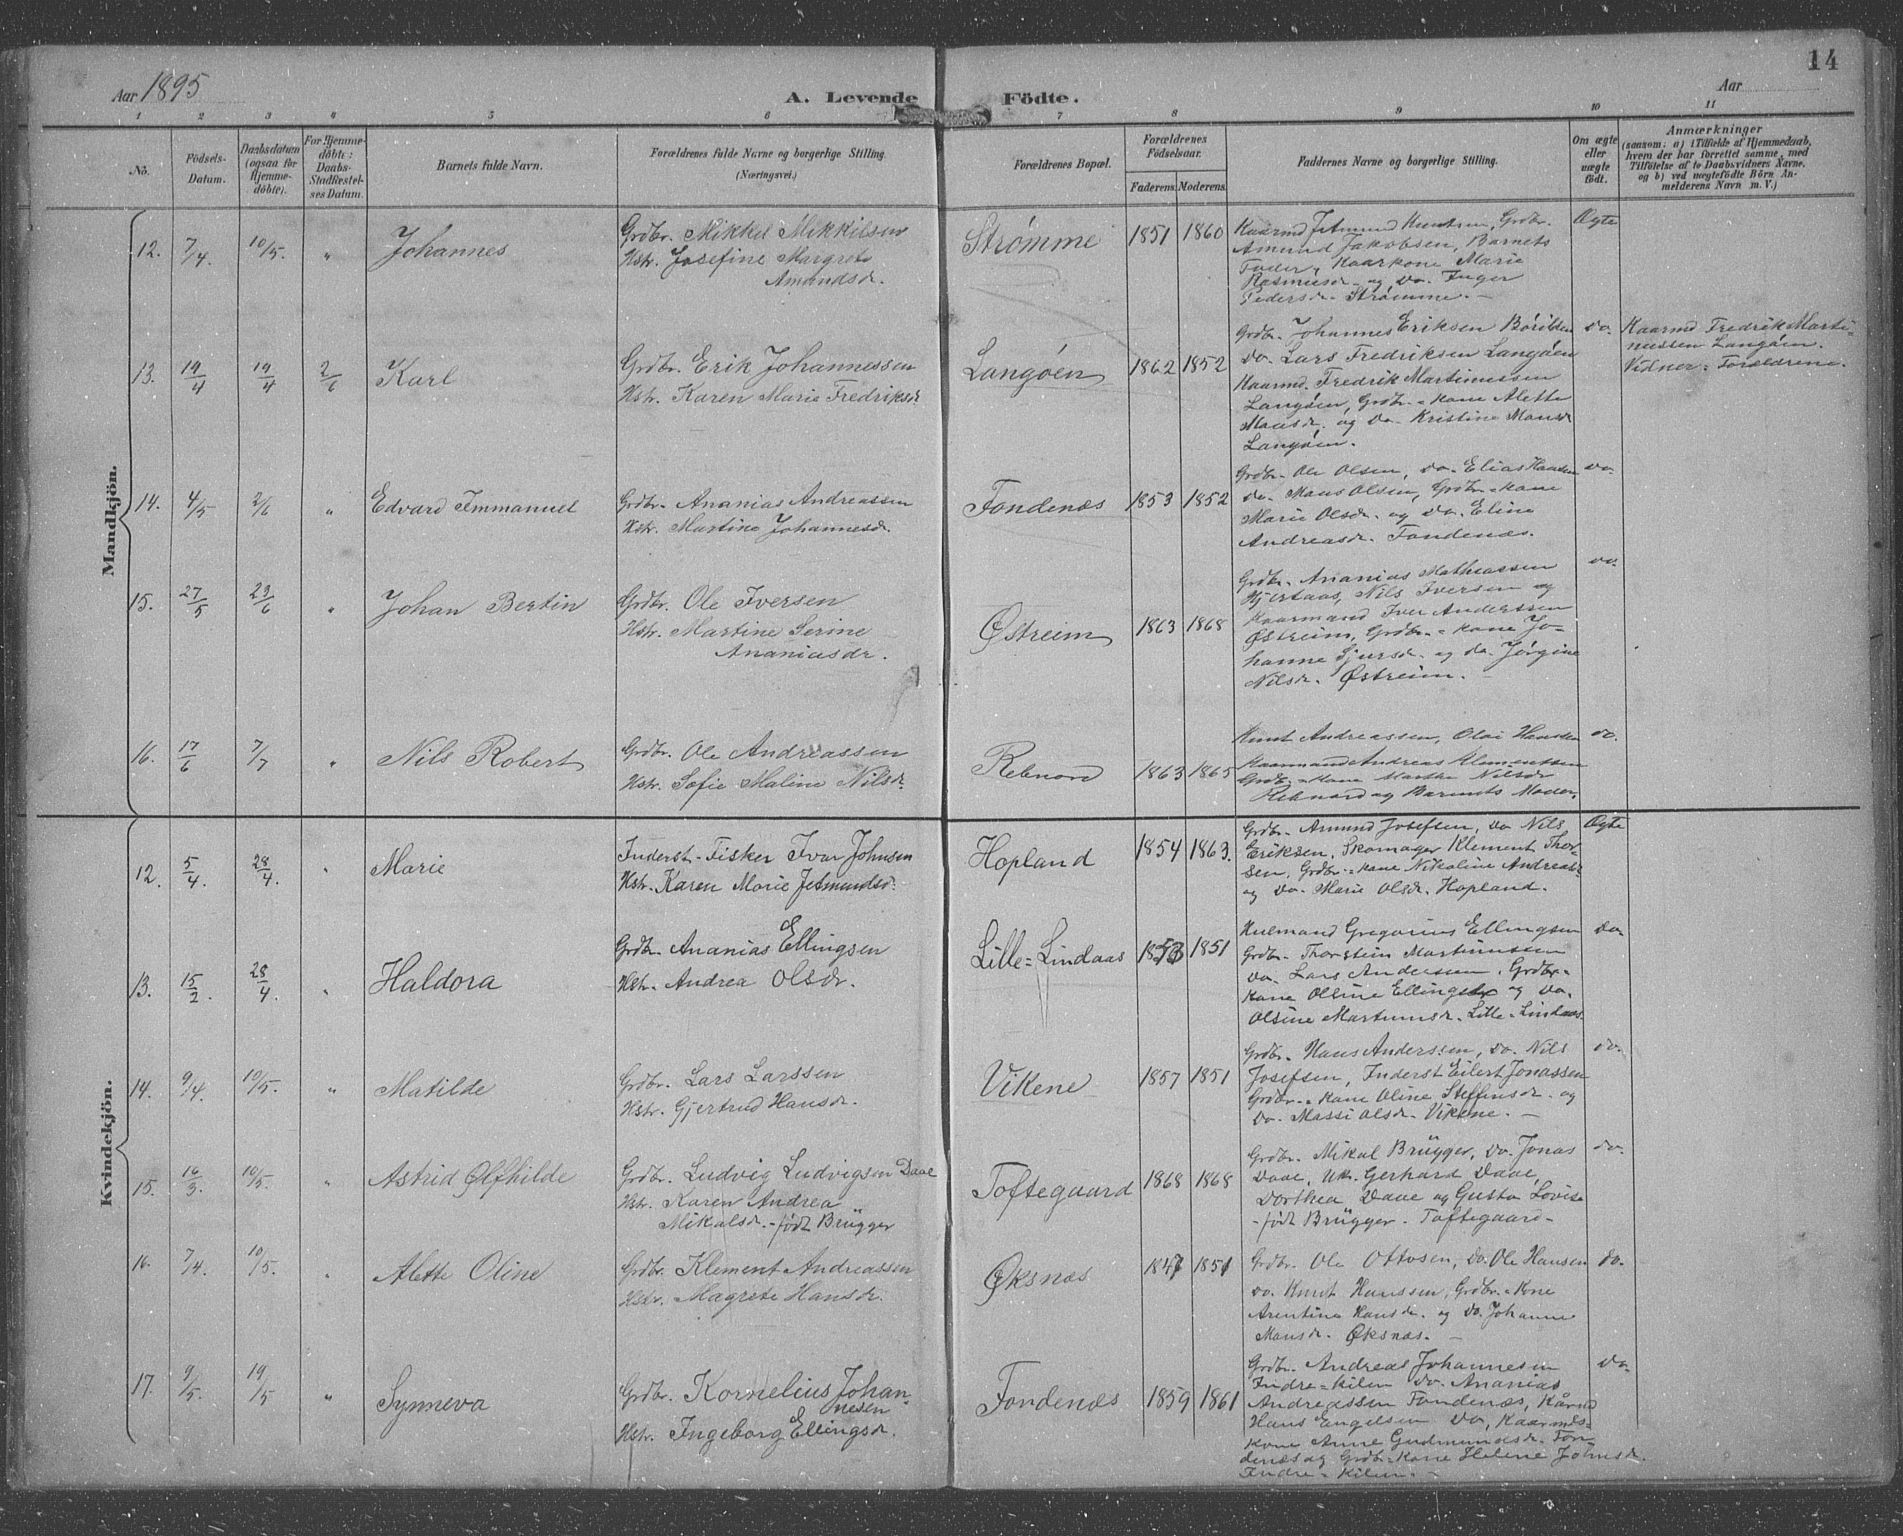 14
Aar 1895
A. Levende Födte.
Aar
1 2 3 4 5 6 7 8 9 10 11
No.
Födsels-Datum.
Daabsdatum (ogsaa for Hjemme-döbte).
For Hjemme-döbte: Daabs-Stadfæstel-ses Datum.
Barnets fulde Navn.
Forældrenes fulde Navne og borgerlige Stilling.
(Næringsvei.)
Forældrenes Bopæl.
Forældrenes Födselsaar.
Faderens. Moderens.
Faddernes Navne og borgerlige Stilling.
Om ægte eller uægte födt.
Anmærkninger
(saasom: a) i Tilfælde af Hjemmedaab, hvem der har forrettet samme, med Tilföielse af to Daabsvidners Navne, og b) ved uægtefödte Börn An-melderens Navn m. V.)
Mandkjön.
12. 7/4. 10/5. " Johannes
Grdbr. Mikkel Mikkelsen
Hstr. Josefine Margrete
Amundsdr.
Strømme 1851 1860
Kaarmd Jetmund Knutsen, Grdbr.
Amund Jakobsen, Barnets
Fader, Kaarkone Marie
Rasmusdr. og do. Inger
Pedersdr. Strømme. -
Ægte
13. 19/4 19/4 2/6 Karl
Grdbr. Erik Johannessen
Hstr. Karen Marie Fredriksdr.
Langøen 1862 1852
Grdbr. Johannes Eriksen Börilden
do. Lars Fredriksen Langøen
Kaarmd. Fredrik Martinussen
Langøen, Grdbr.=kone Alette
Monsdr. og do. Kristine Monsdr
Langøen.
do.
Kaarmd Fredrik Marti-
nussen Langøen.
Vidner: Forældrene.
14. 4/5 2/6 " Edvard Immanuel
Grdbr. Ananias Andreassen
Hstr. Martine Johannesdr.
Fondenæs 1853 1852
Grdbr. Ole Olsen, do. Elias Hansen
do. Mons Olsen, Grdbr.=kone
Marie Olsdr. og do. Eline
Andreasdr. Fondenæs.
do.
15. 27/5 23/6 " Johan Bertin
Grdbr. Ole Iversen
Hstr. Martine Serine
Ananiasdr.
Østreim 1863 1868
Grdbr. Ananias Mathiassen
Hjertaas, Nils Iversen og
Kaarmand Iver Anderssen
Østreim, Grdbr.=kone Jo-
hanne Sjursdr. og do. Jörgine
Nilsdr. Østreim. -
do.
16. 17/6 7/7 " Nils Robert
Grdbr. Ole Andreassen
Hstr. Sofie Maline Nilsdr.
Rebnord 1863 1865
Knut Andreassen, Olai Hansen
Kaarmand Andreas Klementssen
Grdbr.=kone Marthe Nilsdr
Rebnord og Barnets Moder.
do.
Kvindekjön.
12. 5/4. 28/4. " Marie
Inderst-Fisker Ivar Johnsen
Hstr. Karen Marie Jetmundsdr.
Hopland 1854 1863.
Grdbr. Amund Josefsen, do Nils
Eriksen, Skomager Klement Thor-
sen, Grdbr.=kone Nikoline Andreasdr
og do. Marie Olsdr. Hopland.
Ægte
13. 15/2. 28/4. " Haldora
Grdbr. Ananias Ellingsen
Hstr. Andrea Olsdr.
Lille=Lindaas 1853 1851
Kulmand Gregorius Ellingsen
Grdbr. Thorstein Martinussen
do. Lars Anderssen, Grdbr.=
kone Olline Ellingsdr og do.
Olsine Martinusdr. Lille=Lindaas.
do.
14. 9/4. 10/5. " Matilde
Grdbr. Lars Larssen
Hstr. Gjertrud Hansdr.
Vikene 1857 1851
Grdbr. Hans Anderssen, do. Nils
Josefsen, Inderst Eilert Jonassen
Grdbr.=kone Oline Steffensdr. og
do. Massi Olsdr. Vikene. -
do.
15. 16/3. 10/5. " Astrid Ølfhilde
Grdbr. Ludvig Ludvigsen Daae
Hstr. Karen Andrea
Mikalsdr. - født Brügger
Toftegaard 1868 1868
Grdbr. Mikal Brügger, do. Jonas
Daae, Uk. Gerhard Daae,
Dorthea Daae og Gusta Lovise
- født Brügger. Toftegaard -
do.
16. 7/4. 10/5. " Alette Oline
Grdbr. Klement Andreassen
Hstr. Magrete Hansdr.
Øksnæs 1847 1851
Grdbr. Ole Ottosen, do. Ole Hansen
do. Knut Hanssen, Grdbr.=kone
Arentine Hansdr. og do. Johanne
Monsdr. Øksnæs. -
do.
17. 9/5. 19/5 " Synneva
Grdbr. Kornelius Johan-
nesen
Hstr. Ingeborg Ellingsdr.
Fondenæs 1859 1861
Grdbr. Andreas Johannesen
Indre=kilen do. Ananias
Andreassen Fondenæs, Kårmd
Hans Engelsen do, Kaarmds-
kone Anne Gudmundsdr. Fon-
denæs og Grdbr.=kone Helene Johnsdr.
Indre=Kilen. -
do.